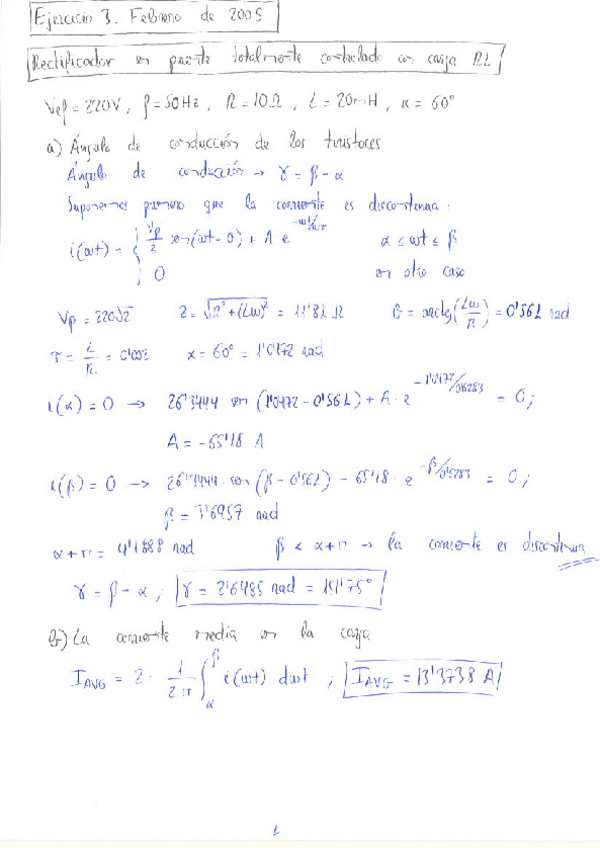 Ejercicio 3. Febrero de 2005
Rectificador en puente totalmente controlado con carga RL
Vef = 220V, f = 50Hz, R = 10Ω, L = 20mH, α = 60°
a) Ángulo de conducción de los tiristores
Ángulo de conducción → γ = β - α
Suponemos primero que la corriente es discontinua:
i(ωt) = { Vp/Z sen(ωt - θ) + A e^(-ωt/ωτ) α ≤ ωt ≤ β
0 en otro caso
Vp = 220√2 Z = √(R² + (Lω)²) = 11'81 Ω θ = arctg(Lω/R) = 0'561 rad
τ = L/R = 0'002 α = 60° = 1'0472 rad
i(α) = 0 → 26'3444 sen (1'0472 - 0'561) + A · e^(-1'0472/0'6283) = 0;
A = -65'18 A
i(β) = 0 → 26'3444 · sen (β - 0'561) - 65'18 · e^(-β/0'6283) = 0;
β = 3'6957 rad
α + π = 4'1888 rad β < α + π → la corriente es discontinua
γ = β - α; γ = 2'6485 rad = 151'75°
b) La corriente media en la carga
I_AVG = 2 · 1/2π ∫_α^β i(ωt) dωt ; I_AVG = 13'3738 A
1